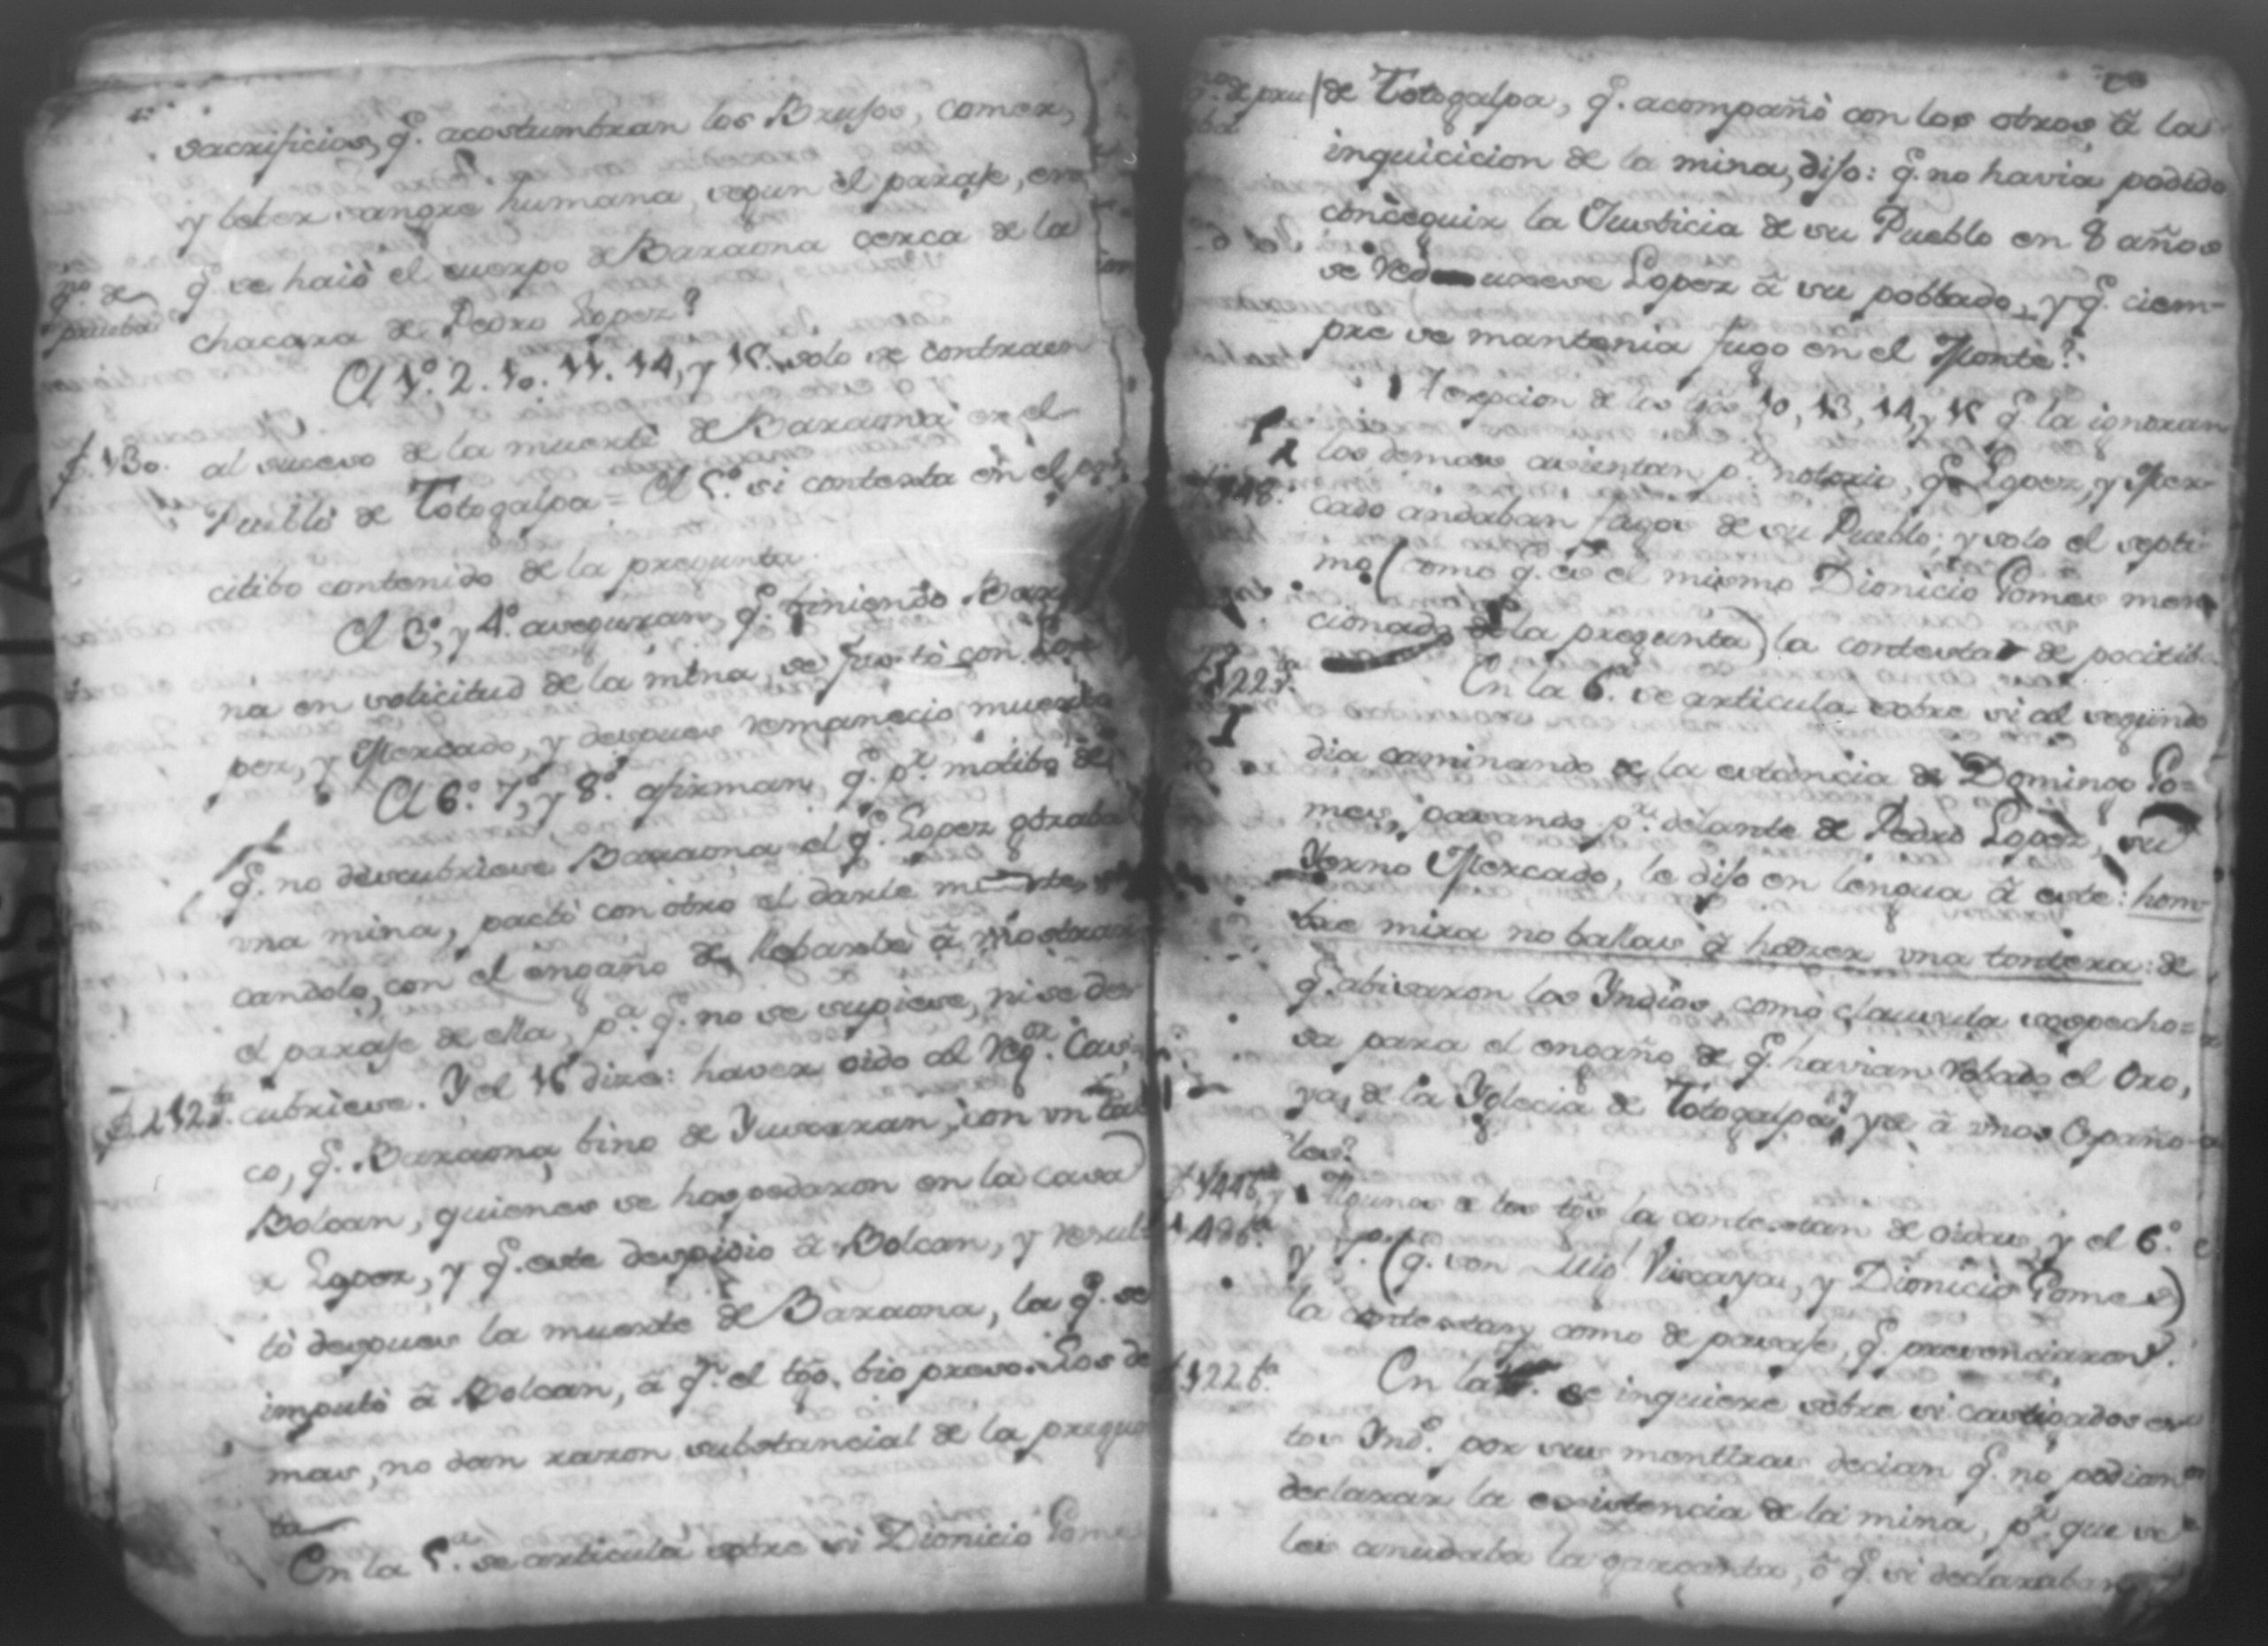 sacrificios, q.e acostumbran los Brujos, comer,
y beber sangre humana, segun el paraje, en
q.e se haió el cuerpo de Baraona cerca de la
no
q.e de
prueba
chacara de Pedro Lopez?
El 1.º 2. 10. 11. 14, y 15. solo se contraen
f. 130.
al suceso de la muerte de Baraona en el
Pueblo de Totogalpa = El 5.º si contexta en el po
citibo contenido de la pregunta.
El 3.º, y 4.º aseguran, q.e biniendo Barao
na en solicitud de la mina, se justó con Lo
pez, y Mercado, y despues remanecio muerto
El 6.º 7.º, y 8.º afirman, q.e p.r motibo de
q.e no descubriese Baraona el q.e Lopez gozaba
una mina, pactó con otro el darle muerte,
candolo, con el engaño de llebarle â mostrar
el paraje de ella, p.a q.e no se supiese, ni se des
cubriese. Y el 16 dice: haver oido al Reg.or Cas
co, q.e Baraona bino de Yuscaran, con un tal
Bolcan, quienes se hospedaron en la casa
de Lopez, y q.e este despidio â Bolcan, y resul
tó despues la muerte de Baraona, la q.e se
imputó â Bolcan, â q.e el tgo. bio preso. Los de
mas, no dan razon substancial de la pregun
ta
En la 5.a se articula sobre si Dionicio Gome
q.e de prue
ba
de Totogalpa, q.e acompañó con los otros, â la
inquicicion de la mina, dijo: q.e no havia podido
conceguir la Justicia de su Pueblo en 8 años
se Lopez â su poblado, y q.e ciem-
pre se mantenia fugo en el Monte?
A ecepcion de los tgos 10, 13, 14, y 15 q.e la ignoran
los demas asientan p.r notorio, q.e Lopez, y Mer-
cado andaban fugos de su Pueblo; y solo el septi
mo (como q.e es el mismo Dionicio Gomes men
cionado de la pregunta) la contexta de pocitib
En la 6.a se articula sobre si al segundo
dia caminando de la estancia de Domingo Go=
mes, pasando p.r delante de Pedro Lopez, su
Yerno Mercado, le dijo en lengua â este: hom
bre mira no ballas â hacer una tontera: de
q.e abisaron los Yndios, como clausula sospecho=
sa para el engaño de q.e havian robado el Oro,
ya, de la Yglecia de Totogalpa, ya â unos Españo
les?
Algunos de los tgos la contextan de oidas, y el 6.º
y 7.º (q.e son Mig.l Viscaya, y Dionicio Gomes)
la contextan, como de pasaje, q.e presenciaron.
En la se inquiere sobre si castigados es
tos Ynd.s por sus mentiras decian q.e no podian
declarar la existencia de la mina, p.r que se
les anudaba la garganta, ô q.e si declaraban